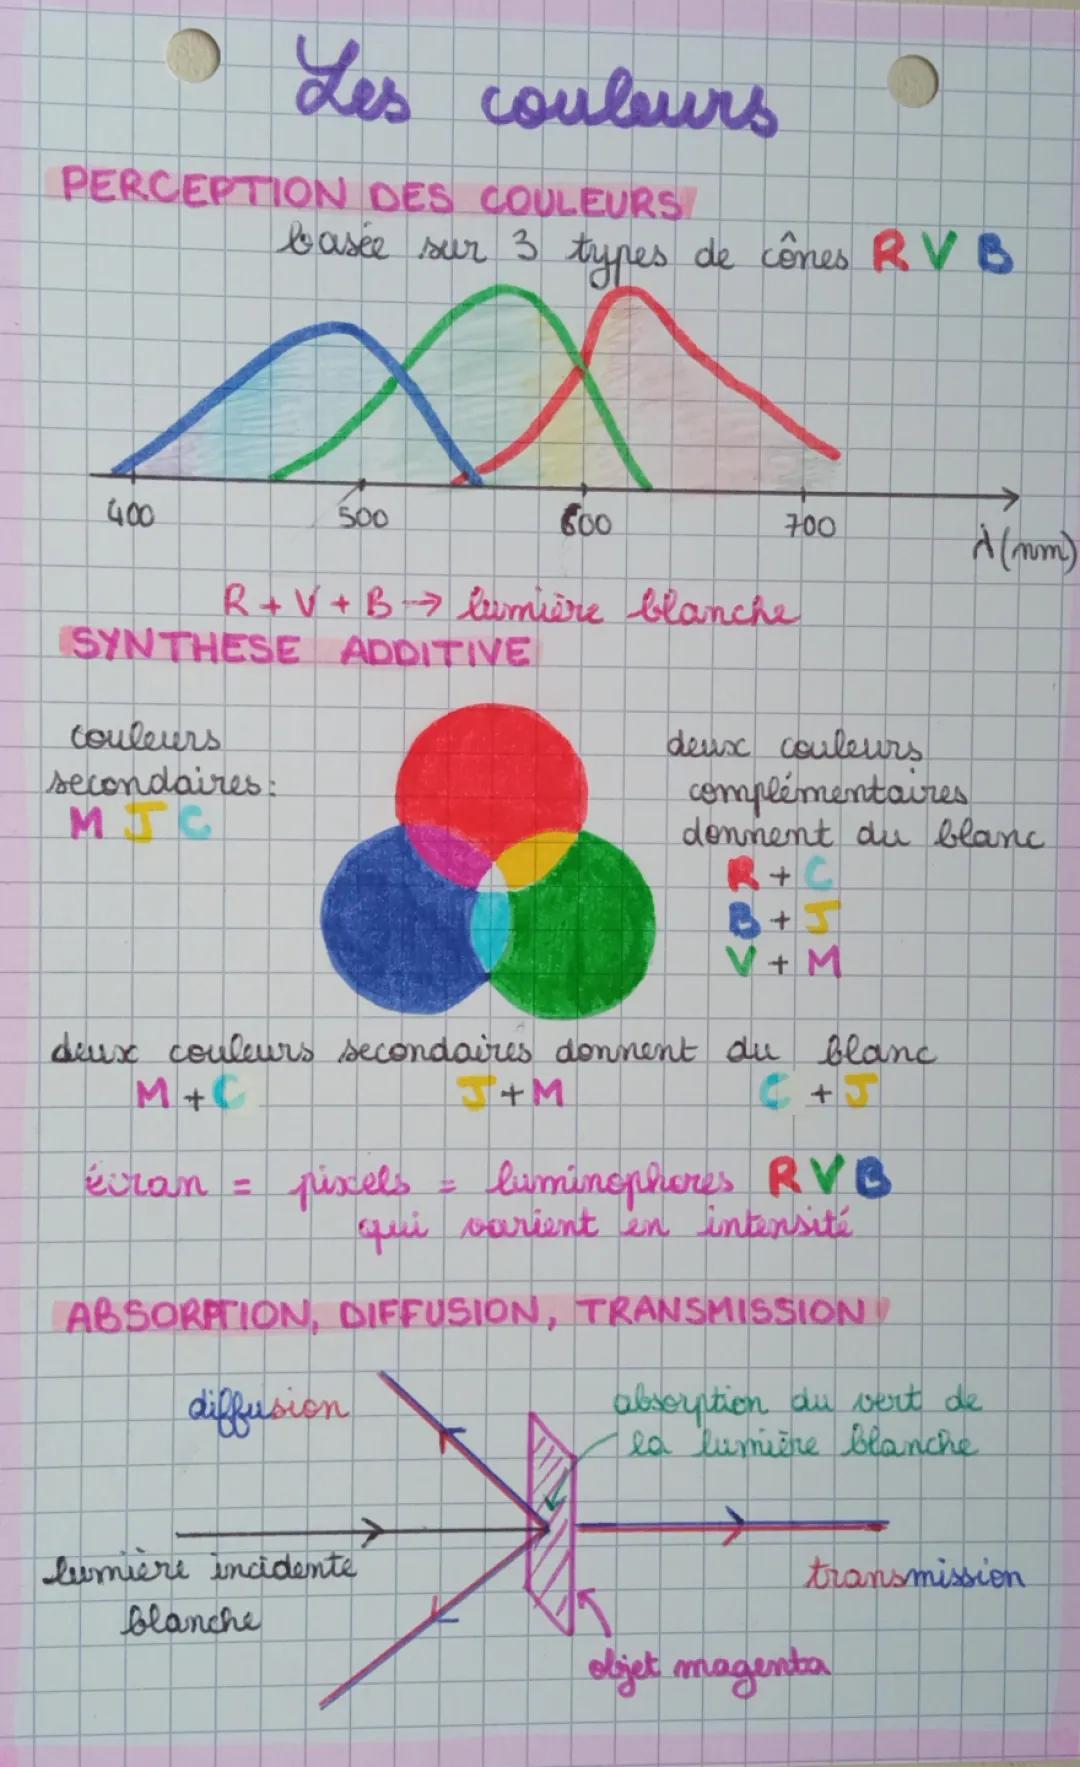 Les couleurs
PERCEPTION DES COULEURS
basée sur 3 types de cônes R V B
400
500
600
700
λ(nm)
R + V + B → lumière blanche
SYNTHESE ADDITIVE
couleurs
secondaires:
M J C
deux couleurs
complémentaires
donnent du blanc
R + C
B + J
V + M
deux couleurs secondaires donnent du blanc
M + C
J + M
C + J
écran = pixels = luminophores R V B
qui varient en intensité
ABSORPTION, DIFFUSION, TRANSMISSION
diffusion
absorption du vert de
la lumière blanche
lumière incidente
blanche
transmission
objet magenta